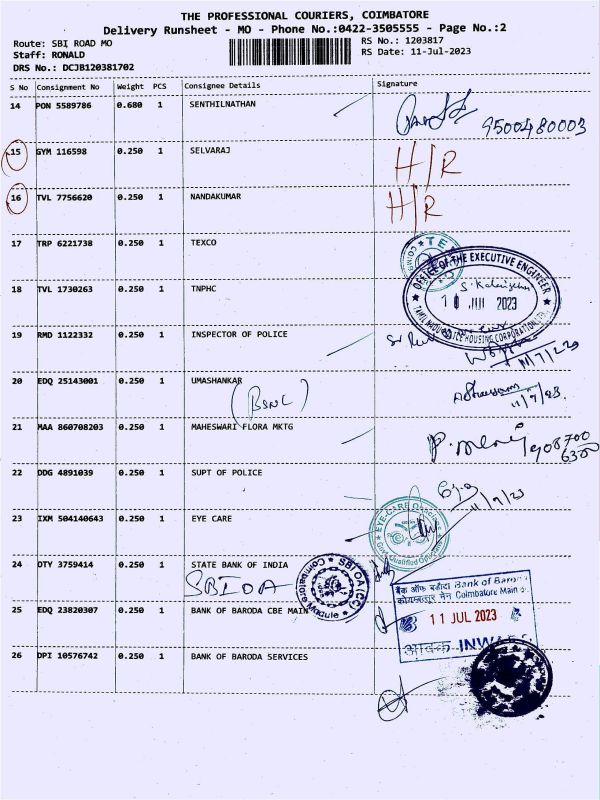 THE PROFESSIONAL COURIERS, COIMBATORE
Delivery Runsheet - MO - Phone No.:0422-3505555 - Page No.:2
Route: SBI ROAD MO
RS No.: 1203817
Staff: RONALD
RS Date: 11-Jul-2023
DRS No.: DCJB120381702
S No Consignment No Weight PCS Consignee Details Signature
14 PON 5589786 0.680 1 SENTHILNATHAN
9500480003
15 GYM 116598 0.250 1 SELVARAJ H/R
16 TVL 7756620 0.250 1 NANDAKUMAR H/R
17 TRP 6221738 0.250 1 TEXCO
OFFICE OF THE EXECUTIVE ENGINEER
18 TVL 1730263 0.250 1 TNPHC
10 JUL 2023
HOUSING CORPORATION
19 RMD 1122332 0.250 1 INSPECTOR OF POLICE
11/7/23
20 EDQ 25143001 0.250 1 UMASHANKAR
(BSNL)
11/7/23
21 MAA 860708203 0.250 1 MAHESWARI FLORA MKTG
22 DDG 4891039 0.250 1 SUPT OF POLICE
11/7/23
23 IXM 504140643 0.250 1 EYE CARE
EYE-CARE Opticians
24 OTY 3759414 0.250 1 STATE BANK OF INDIA
SBIOA
SBIOA(CC)
Coimbatore Module
बैंक ऑफ बड़ौदा Bank of Baroda
कोयम्बत्तूर मेन Coimbatore Main
25 EDQ 23820307 0.250 1 BANK OF BARODA CBE MAIN
11 JUL 2023
आवक INWARD
26 DPI 10576742 0.250 1 BANK OF BARODA SERVICES